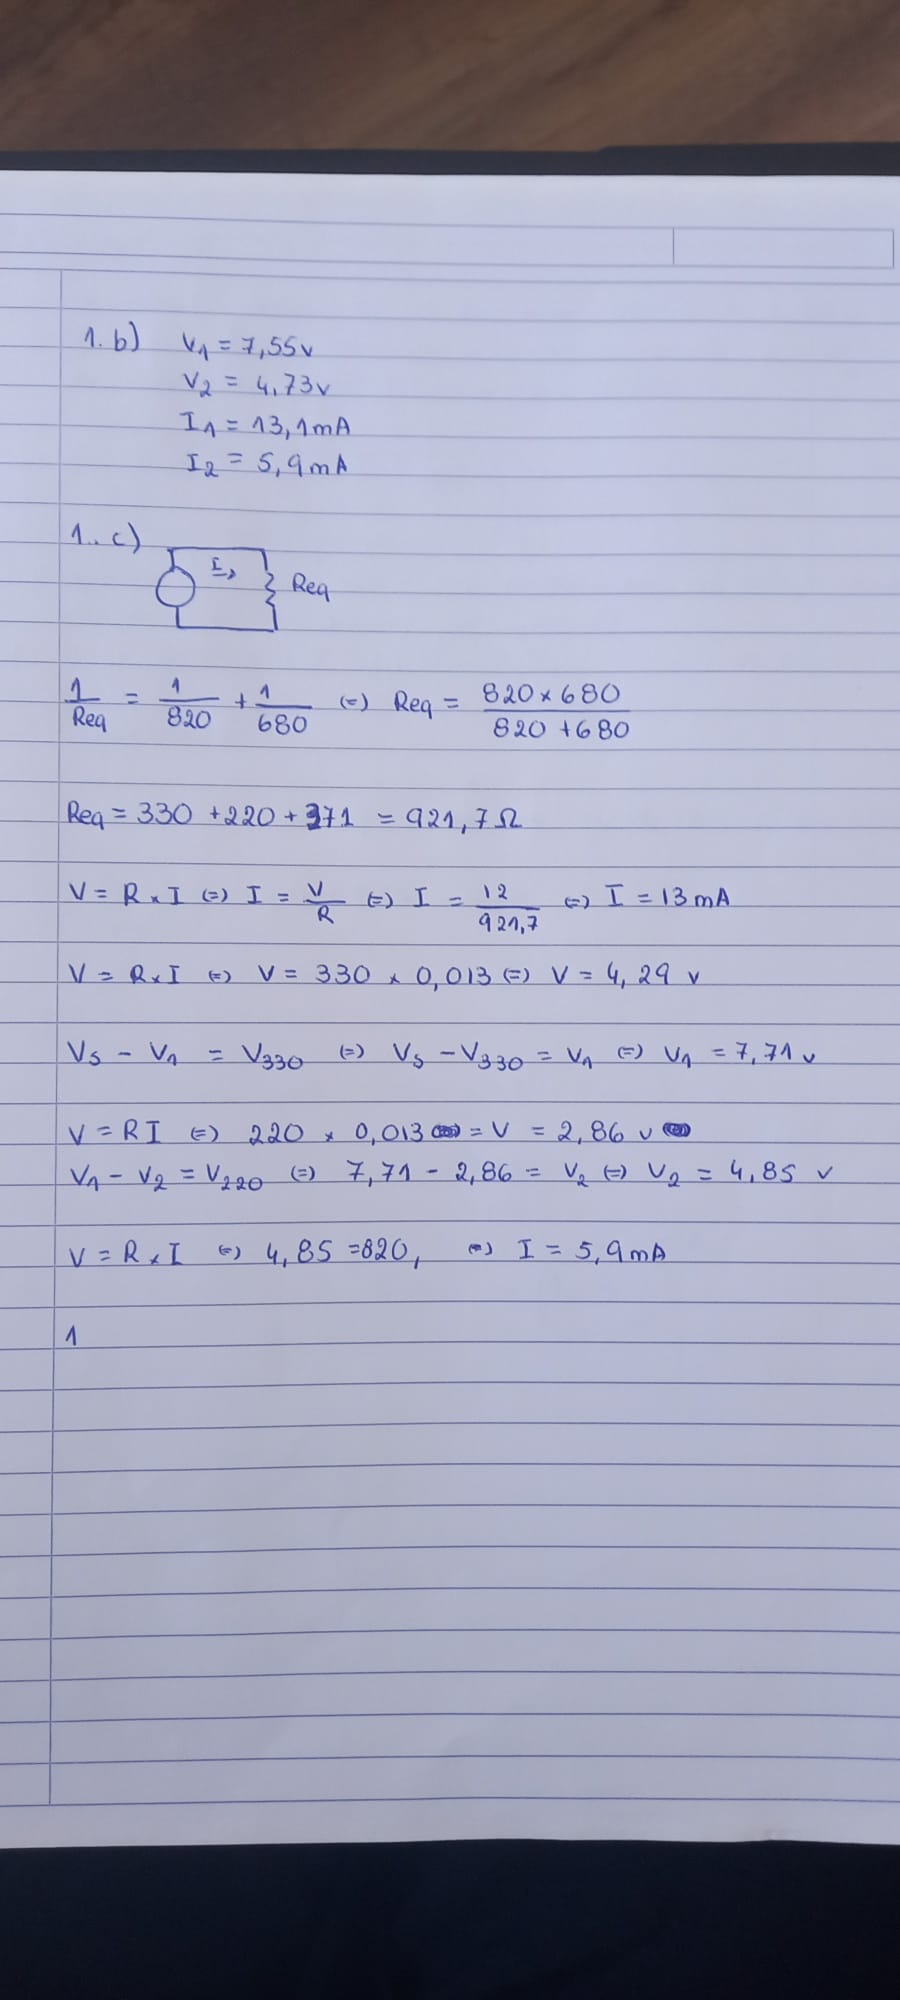 1. b) V1 = 7,55v
V2 = 4,73v
I1 = 13,1mA
I2 = 5,9mA
1.. c)
I Req
1/Req = 1/820 + 1/680 (=) Req = 820 x 680 / 820 + 680
Req = 330 + 220 + 371 = 921,7 Ω
V = R x I (=) I = V/R (=) I = 12/921,7 (=) I = 13 mA
V = R x I (=) V = 330 x 0,013 (=) V = 4,29 v
VS - V1 = V330 (=) VS - V330 = V1 (=) V1 = 7,71 v
V = R I (=) 220 x 0,013 = V = 2,86 v
V1 - V2 = V220 (=) 7,71 - 2,86 = V2 (=) V2 = 4,85 v
V = R x I (=) 4,85 = 820, (=) I = 5,9mA
1